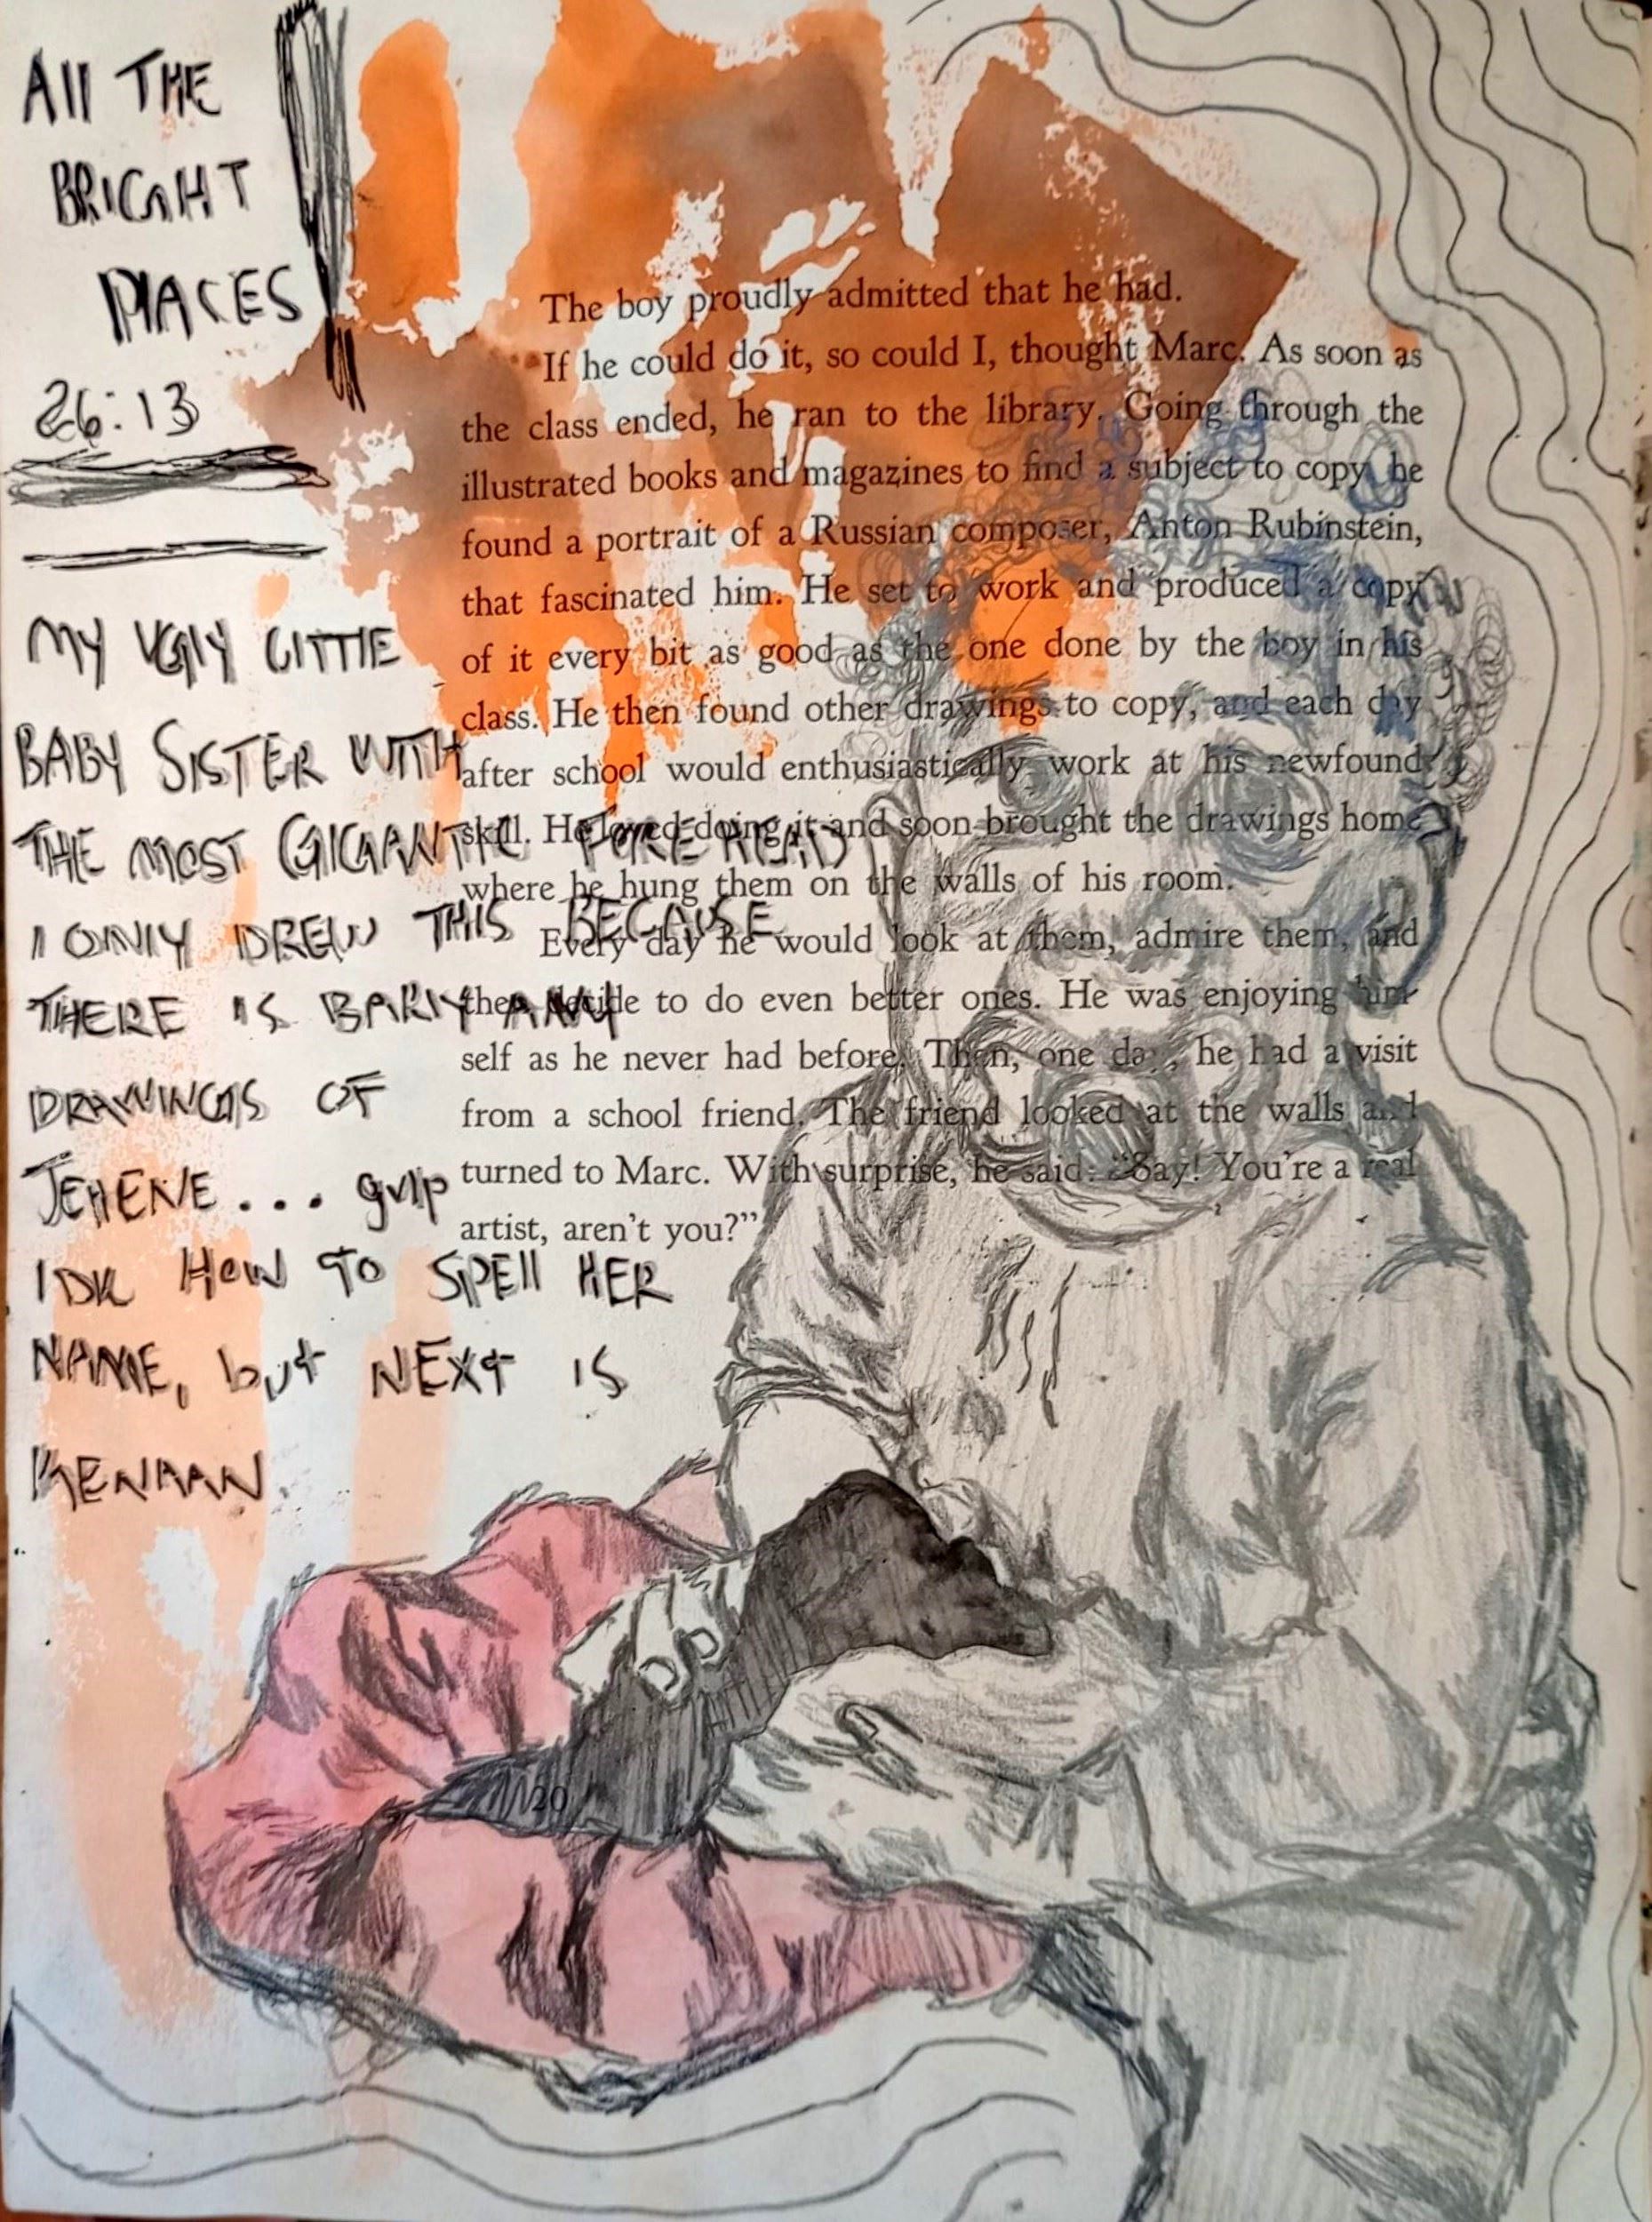 All THE
BRIGHT
PlACES
26:13
MY UGlY LITTlE
BABY SISTER WITH
THE MOST GIGANTIC FOREHEAD
I ONlY DREW THIS BECAUSE
THERE IS BARlY ANY
DRAWINGS OF
JEHENE... gulp
IDK HOW TO SPEll HER
NAME, but NEXT IS
KENAAN
The boy proudly admitted that he had.
If he could do it, so could I, thought Marc. As soon as
the class ended, he ran to the library. Going through the
illustrated books and magazines to find a subject to copy, he
found a portrait of a Russian composer, Anton Rubinstein,
that fascinated him. He set to work and produced a copy
of it every bit as good as the one done by the boy in his
class. He then found other drawings to copy, and each day
after school would enthusiastically work at his newfound
skill. He loved doing it and soon brought the drawings home
where he hung them on the walls of his room.
Every day he would look at them, admire them, and
then decide to do even better ones. He was enjoying him-
self as he never had before. Then, one day, he had a visit
from a school friend. The friend looked at the walls and
turned to Marc. With surprise, he said: "Say! You're a real
artist, aren't you?"
20